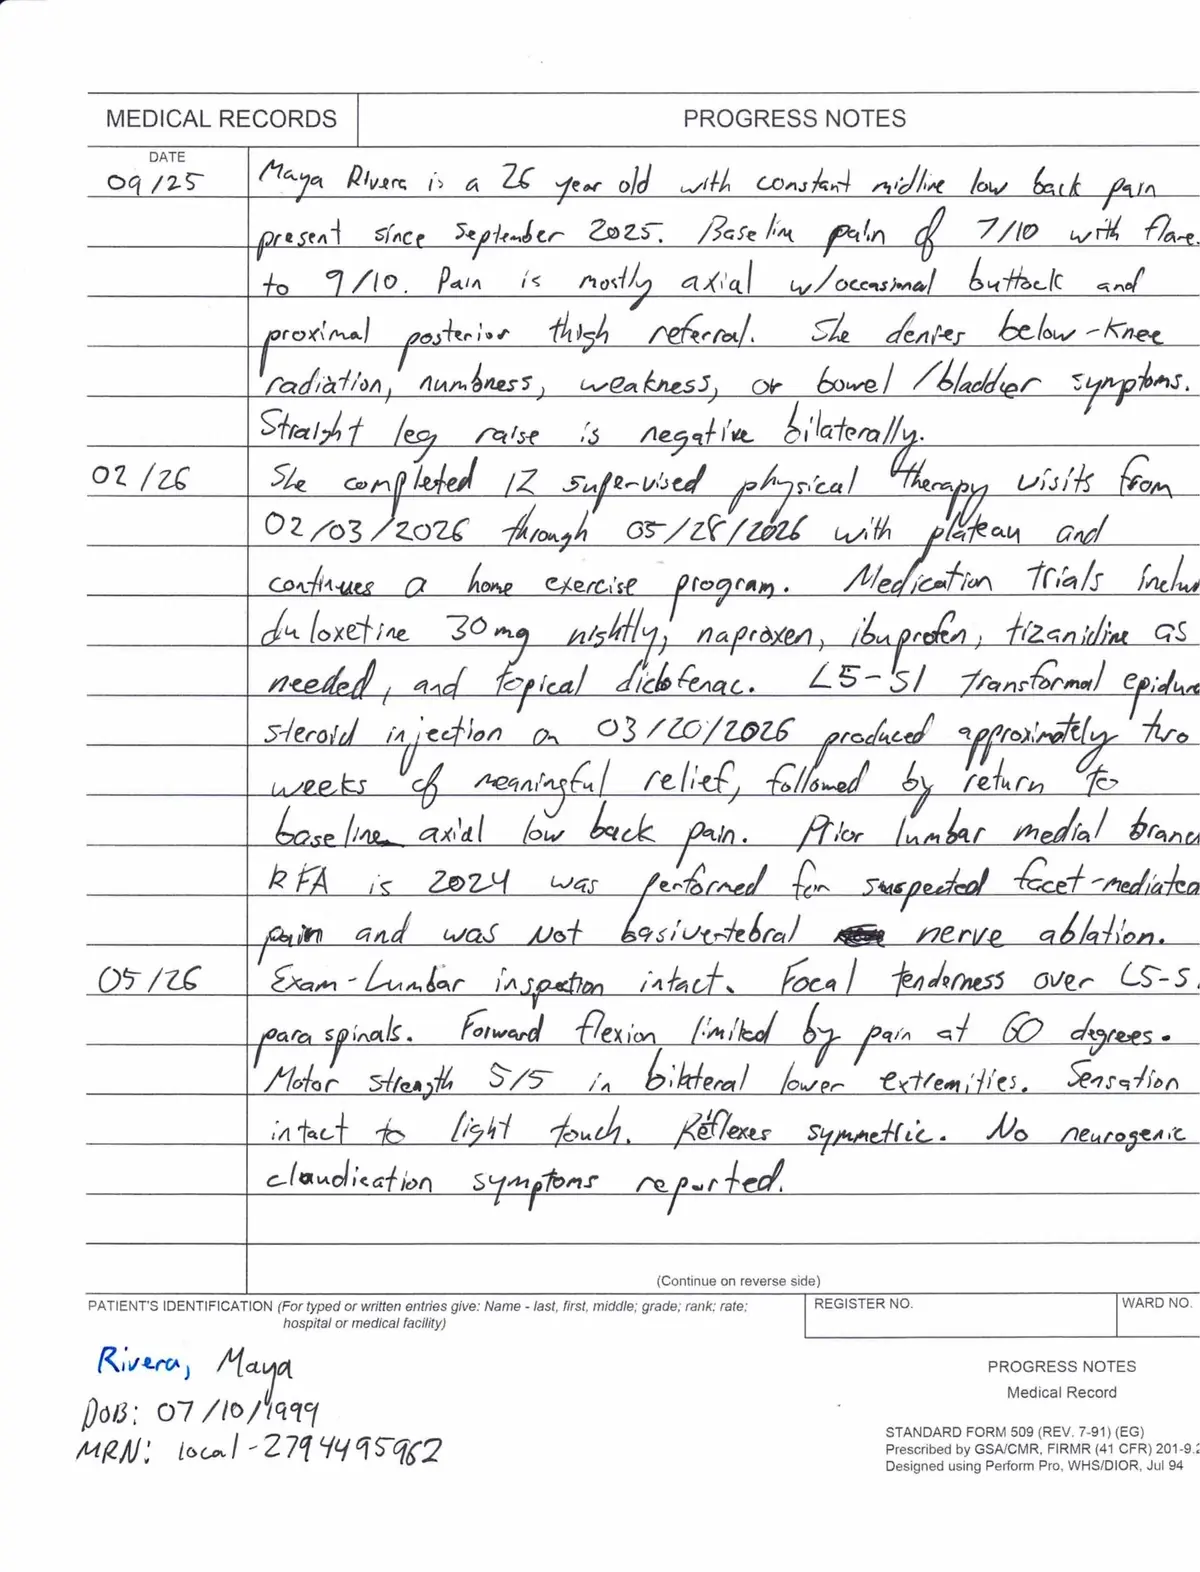 MEDICAL RECORDS
PROGRESS NOTES
DATE
09/25
Maya Rivera is a 26 year old with constant midline low back pain
present since September 2025. Baseline pain of 7/10 with flare
to 9/10. Pain is mostly axial w/occasional buttock and
proximal posterior thigh referral. She denies below-knee
radiation, numbness, weakness, or bowel/bladder symptoms.
Straight leg raise is negative bilaterally.
02/26
She completed 12 supervised physical therapy visits from
02/03/2026 through 05/28/2026 with plateau and
continues a home exercise program. Medication trials inclu
duloxetine 30mg nightly, naproxen, ibuprofen, tizanidine as
needed, and topical diclofenac. L5-S1 transformal epidura
steroid injection on 03/20/2026 produced approximately two
weeks of meaningful relief, followed by return to
baseline axial low back pain. Prior lumbar medial branc
RFA is 2024 was performed for suspected facet-mediated
pain and was Not basivertebral nerve ablation.
05/26
Exam-Lumbar inspection intact. Focal tenderness over L5-S
paraspinals. Forward flexion limited by pain at 60 degrees.
Motor strength 5/5 in bilateral lower extremities. Sensation
intact to light touch. Reflexes symmetric. No neurogenic
claudication symptoms reported.
(Continue on reverse side)
PATIENT'S IDENTIFICATION (For typed or written entries give: Name - last, first, middle; grade; rank; rate;
hospital or medical facility)
REGISTER NO.
WARD NO.
Rivera, Maya
DOB: 07/10/1999
MRN: local-2794495962
PROGRESS NOTES
Medical Record
STANDARD FORM 509 (REV. 7-91) (EG)
Prescribed by GSA/CMR, FIRMR (41 CFR) 201-9.2
Designed using Perform Pro, WHS/DIOR, Jul 94